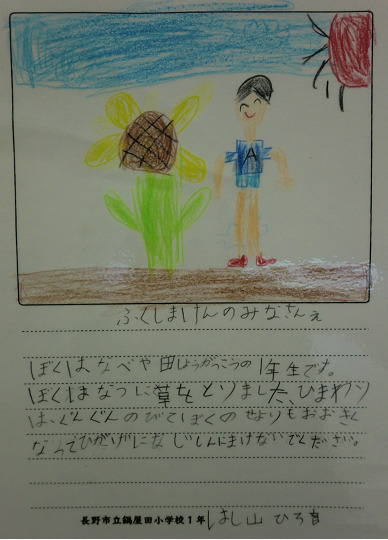 A
ふくしまけんのみなさんえ
ぼくはなべや田しょうがっこうの1年生です。
ぼくはなつに草をとりました、ひまわり
は、ぐんぐんのびてぼくのせよりもおおきく
なってひがげになじしんにまけないでください。
長野市立鍋屋田小学校1年 はし山 ひろ